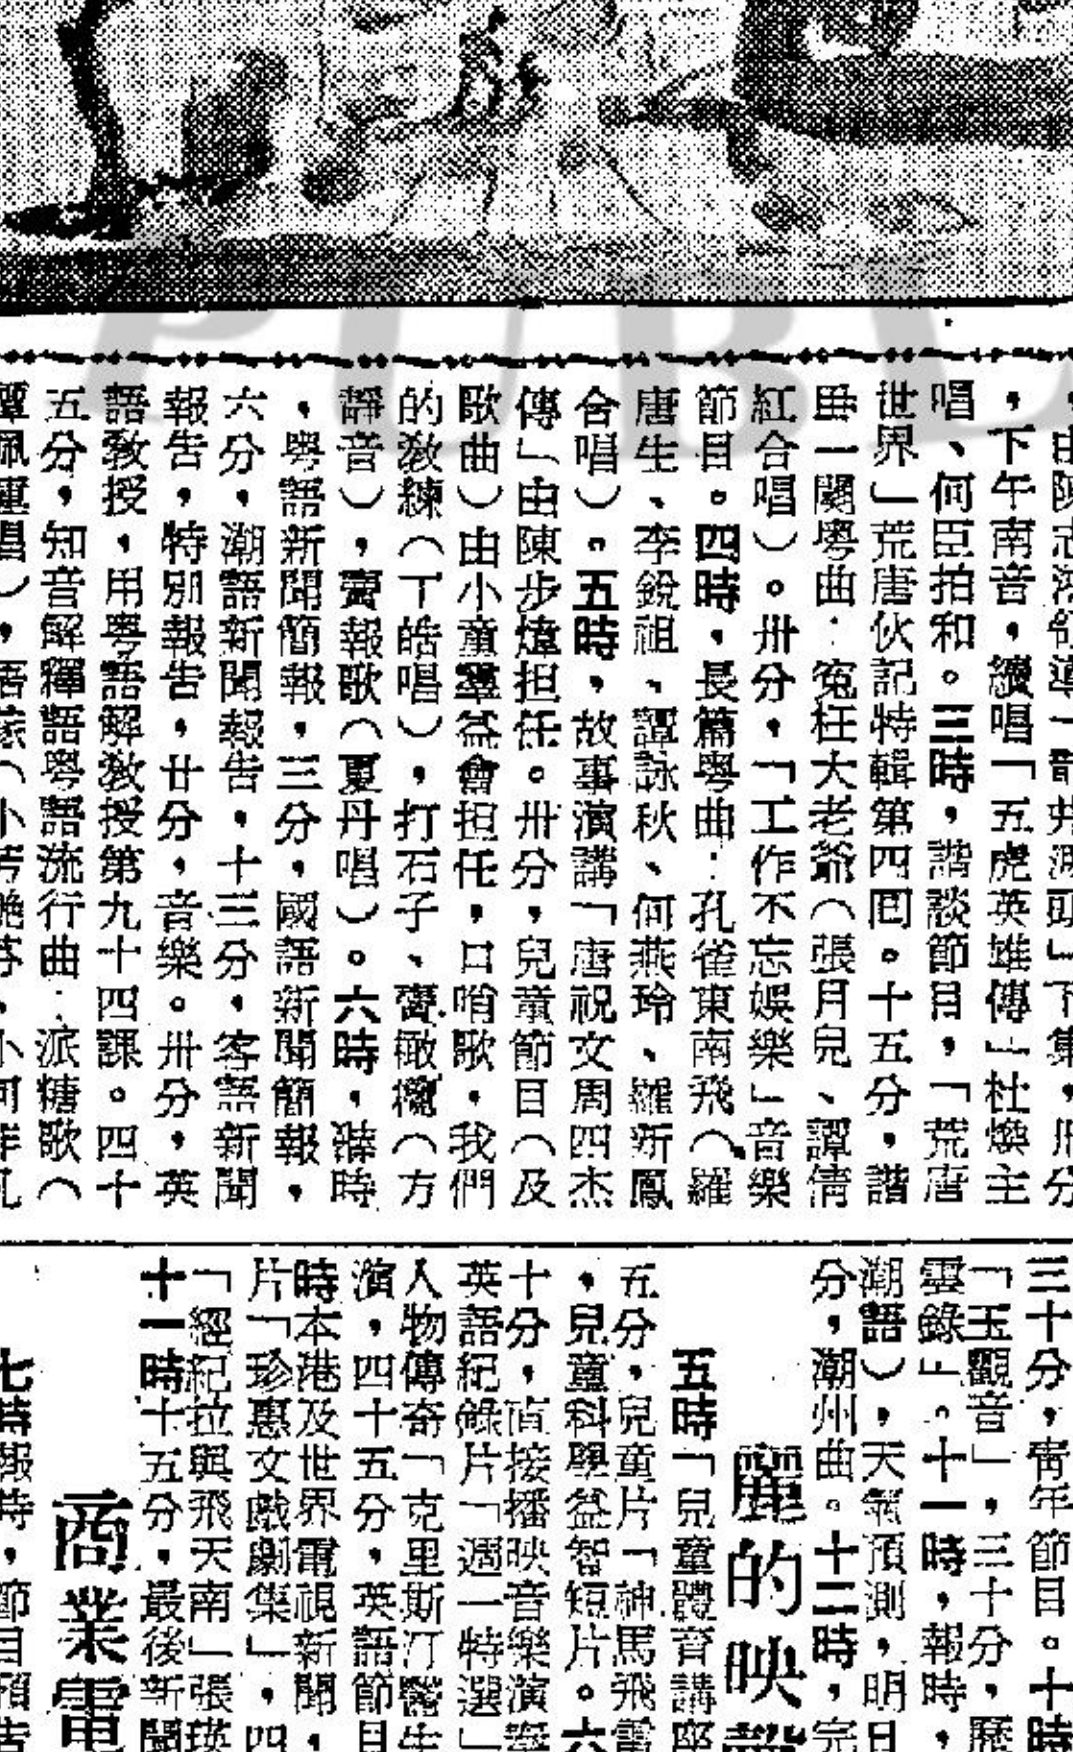 PUBL
，由陳志鴻領導一龍井渡頭」下集，卅分
，下午南音，續唱「五虎英雄傳」杜煥主
唱、何臣拍和。三時，諧談節目，「荒唐
世界」荒唐伙記特輯第四囘。十五分，諧
一闋粵曲：寃枉大老爺（張月兒、譚倩
紅合唱）。卅分，「工作不忘娛樂」音樂
節目。四時，長篇粵曲：孔雀東南飛（羅
唐生、李銳祖、譚詠秋、何燕玲、羅新鳳
合唱）。五時，故事演講「唐祝文周四杰
傳」由陳步煒担任。卅分，兒童節目（及
歌曲）由小童羣益會担任，口哨歌，我們
的教練（丁皓唱），打石子、賣橄欖（方
靜音），賣報歌（夏丹唱）。六時，報時
，粵語新聞簡報，三分，國語新聞簡報，
六分，潮語新聞報告，十三分，客語新聞
報告，特別報告，廿分，音樂。卅分，英
語教授，用粵語解教授第九十四課。四十
五分，知音解釋語粵語流行曲：派糖歌（
譚佩儀唱），
三十分，靑年節目。十時
「玉觀音」，三十分，歷
雲錄」。十一時，報時，
潮語），天氣預測，明日
分，潮州曲。十二時，完
麗的映聲
五時「兒童體育講座
五分，兒童片「神馬飛電
，兒童科學益智短片。六
十分，直接播映音樂演奏
英語紀錄片「週一特選」
人物傳奇「克里斯汀醫生
演，四十五分，英語節目
時本港及世界電視新聞，
片「珍惠文戲劇集」，四
「經紀拉與飛天南」張瑛
十一時十五分，最後新聞
商業電
七時報時，節目預告